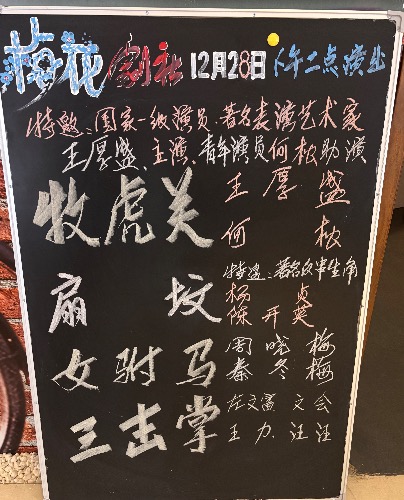 梅花剧社 12月28日 下午二点演出
特邀:国家一级演员.著名表演艺术家
王厚盛.主演.青年演员何松助演
牧虎关 王厚盛
何松
特邀:著名女小生
扇坟 杨贞
陈开英
女驸马 周晓梅
秦冬梅
三击掌 左文富 文会
王力 汪汪